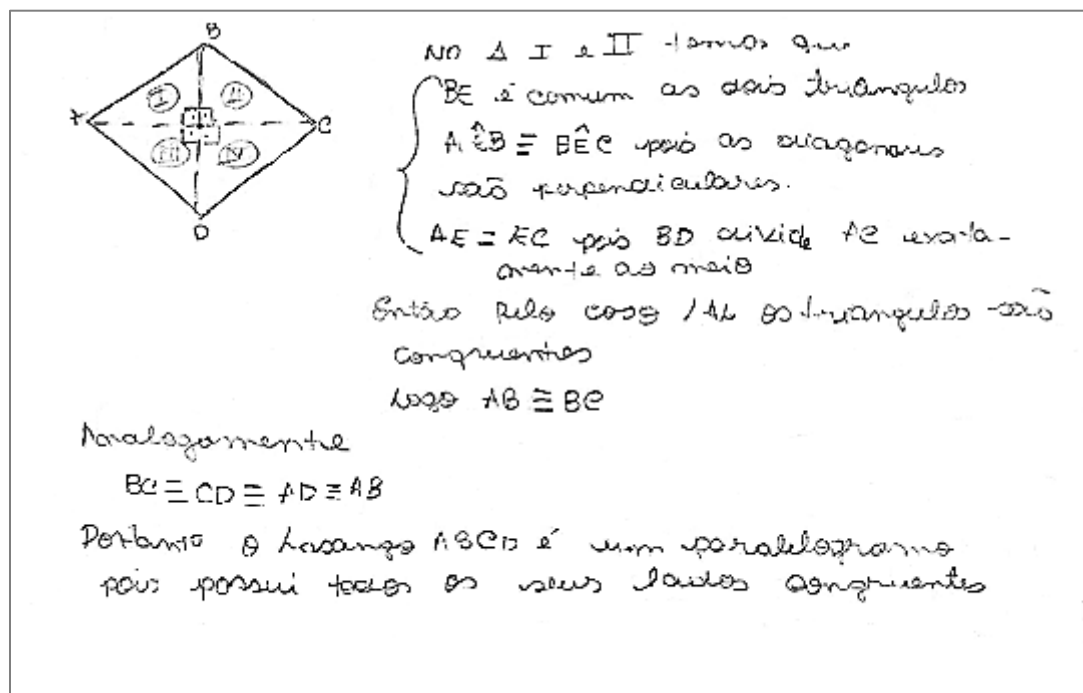 B
A
C
D
I
II
III
IV
NO Δ I e II temos que
BE é comum as dois triangulos
AÊB ≡ BÊC pois as diagonais
são perpendiculares.
AE = EC pois BD divide AC exata-
mente ao meio
Então pelo caso LAL os triangulos são
congruentes
Logo AB ≅ BC
Analogamente
BC ≡ CD ≡ AD ≡ AB
Portanto o Losango ABCD é um paralelogramo
pois possui todos os seus lados congruentes